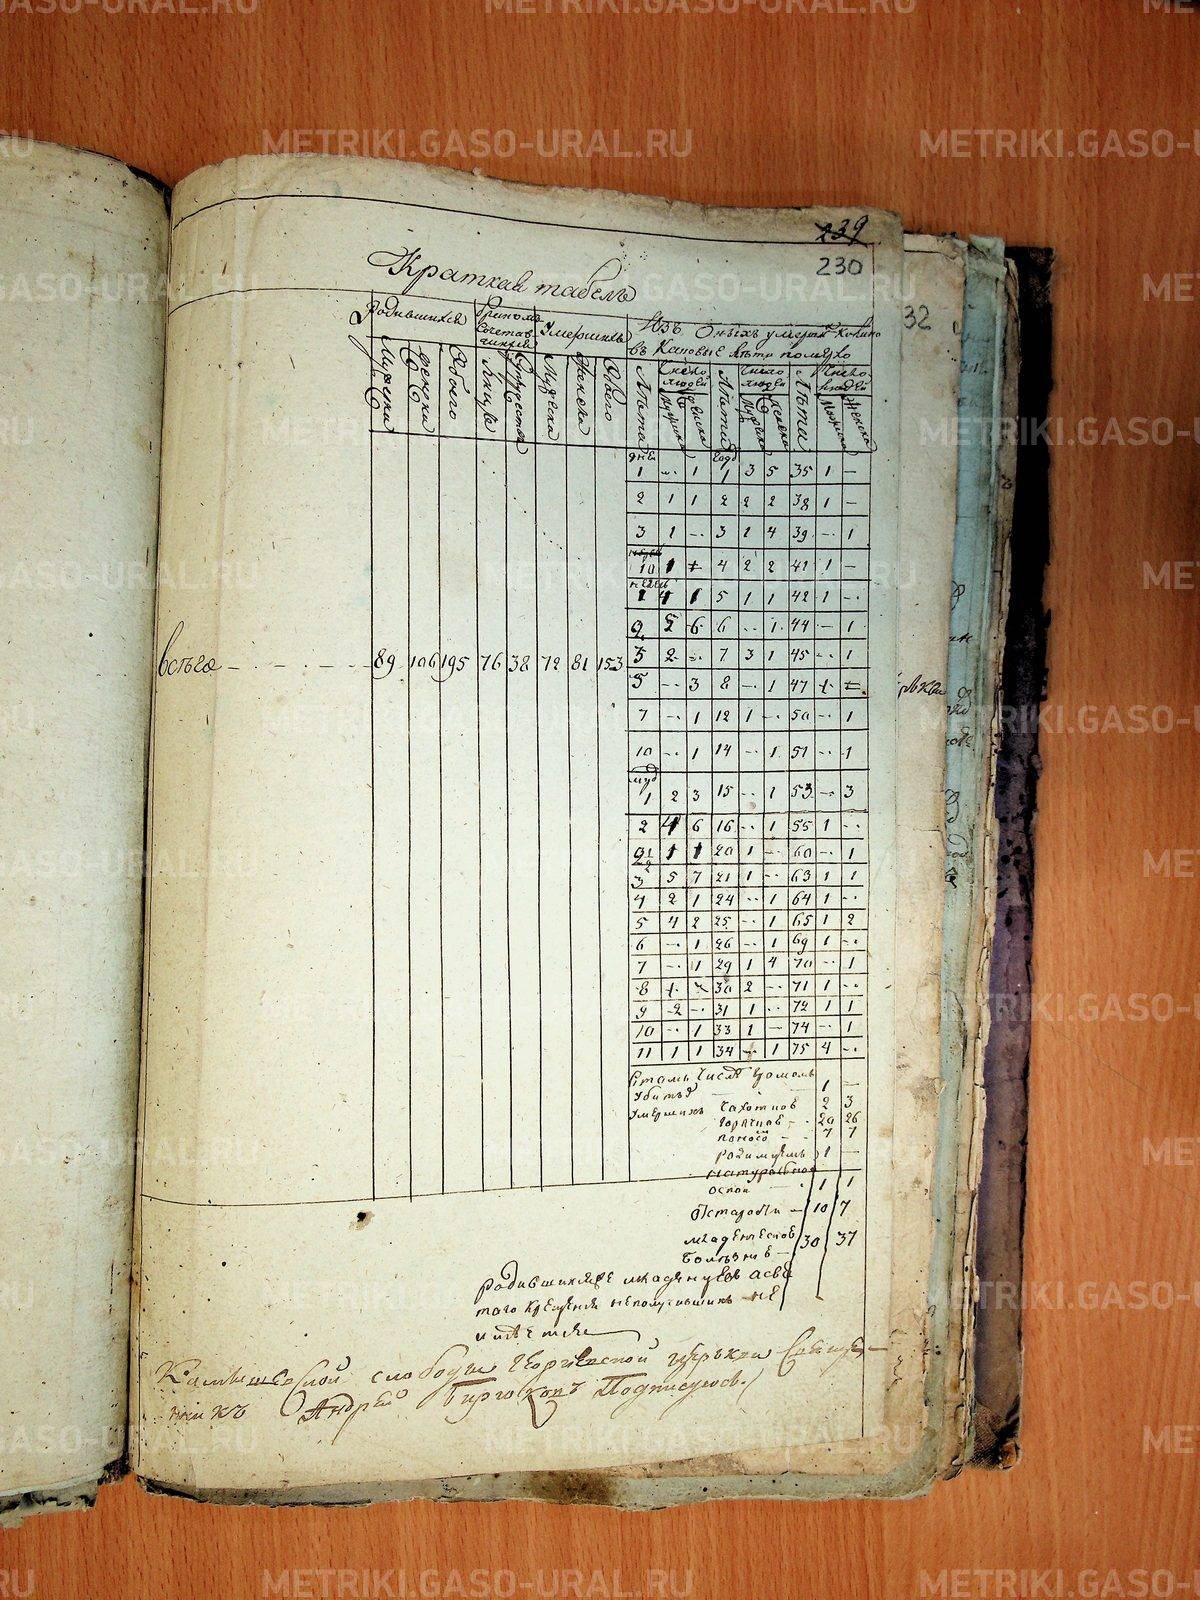 METRIKI.GASO-URAL.RU
239
230
32
Краткая табель
Родившихся
Браком сочетавшихся
Умершихъ
Изъ Оныхъ умерли Колико
въ Каковые лета полично
Мужска Женска Обоего Мужска Женска Обоего Лета Число людей Лета Число людей Лета Число людей
дней 1 - 1 годъ 1 3 5 35 1 -
2 1 1 2 2 2 38 1 -
3 1 - 3 1 4 39 - 1
10 1 4 2 2 41 1 -
недель 1 4 1 5 1 1 42 1 -
2 5 6 6 - 1 44 - 1
3 2 - 7 3 1 45 - 1
всего 89 106 195 76 38 72 81 153
5 - 3 8 - 1 47
7 - 1 12 1 - 50 - 1
10 - 1 14 - 1 51 - 1
1 2 3 15 - 1 53 - 3
2 4 6 16 - 1 55 1 -
2 1/2 1 1 20 1 - 60 - 1
3 5 7 21 1 - 63 1 1
4 2 1 24 - 1 64 1 -
5 4 2 25 - 1 65 1 2
6 - 1 26 - 1 69 1 -
7 - 1 29 1 4 70 - 1
8 30 2 - 71 1 -
9 2 - 31 1 - 72 1 1
10 - 1 33 1 - 74 - 1
11 1 1 34 - 1 75 4 -
числа 1 -
Умершихъ чахоткою 2 3
горячкою 20 26
поносо 7 7
родимцемъ 1 -
натуральной
оспой 1 1
от старости 10 7
младенческой 30 37
болезнию
родившихся младенцов а свя
таго крещения не получившихъ не
имеется
Камышевской слободы Георгиевской церкви Священ-
никъ Андрей Подписуюсь